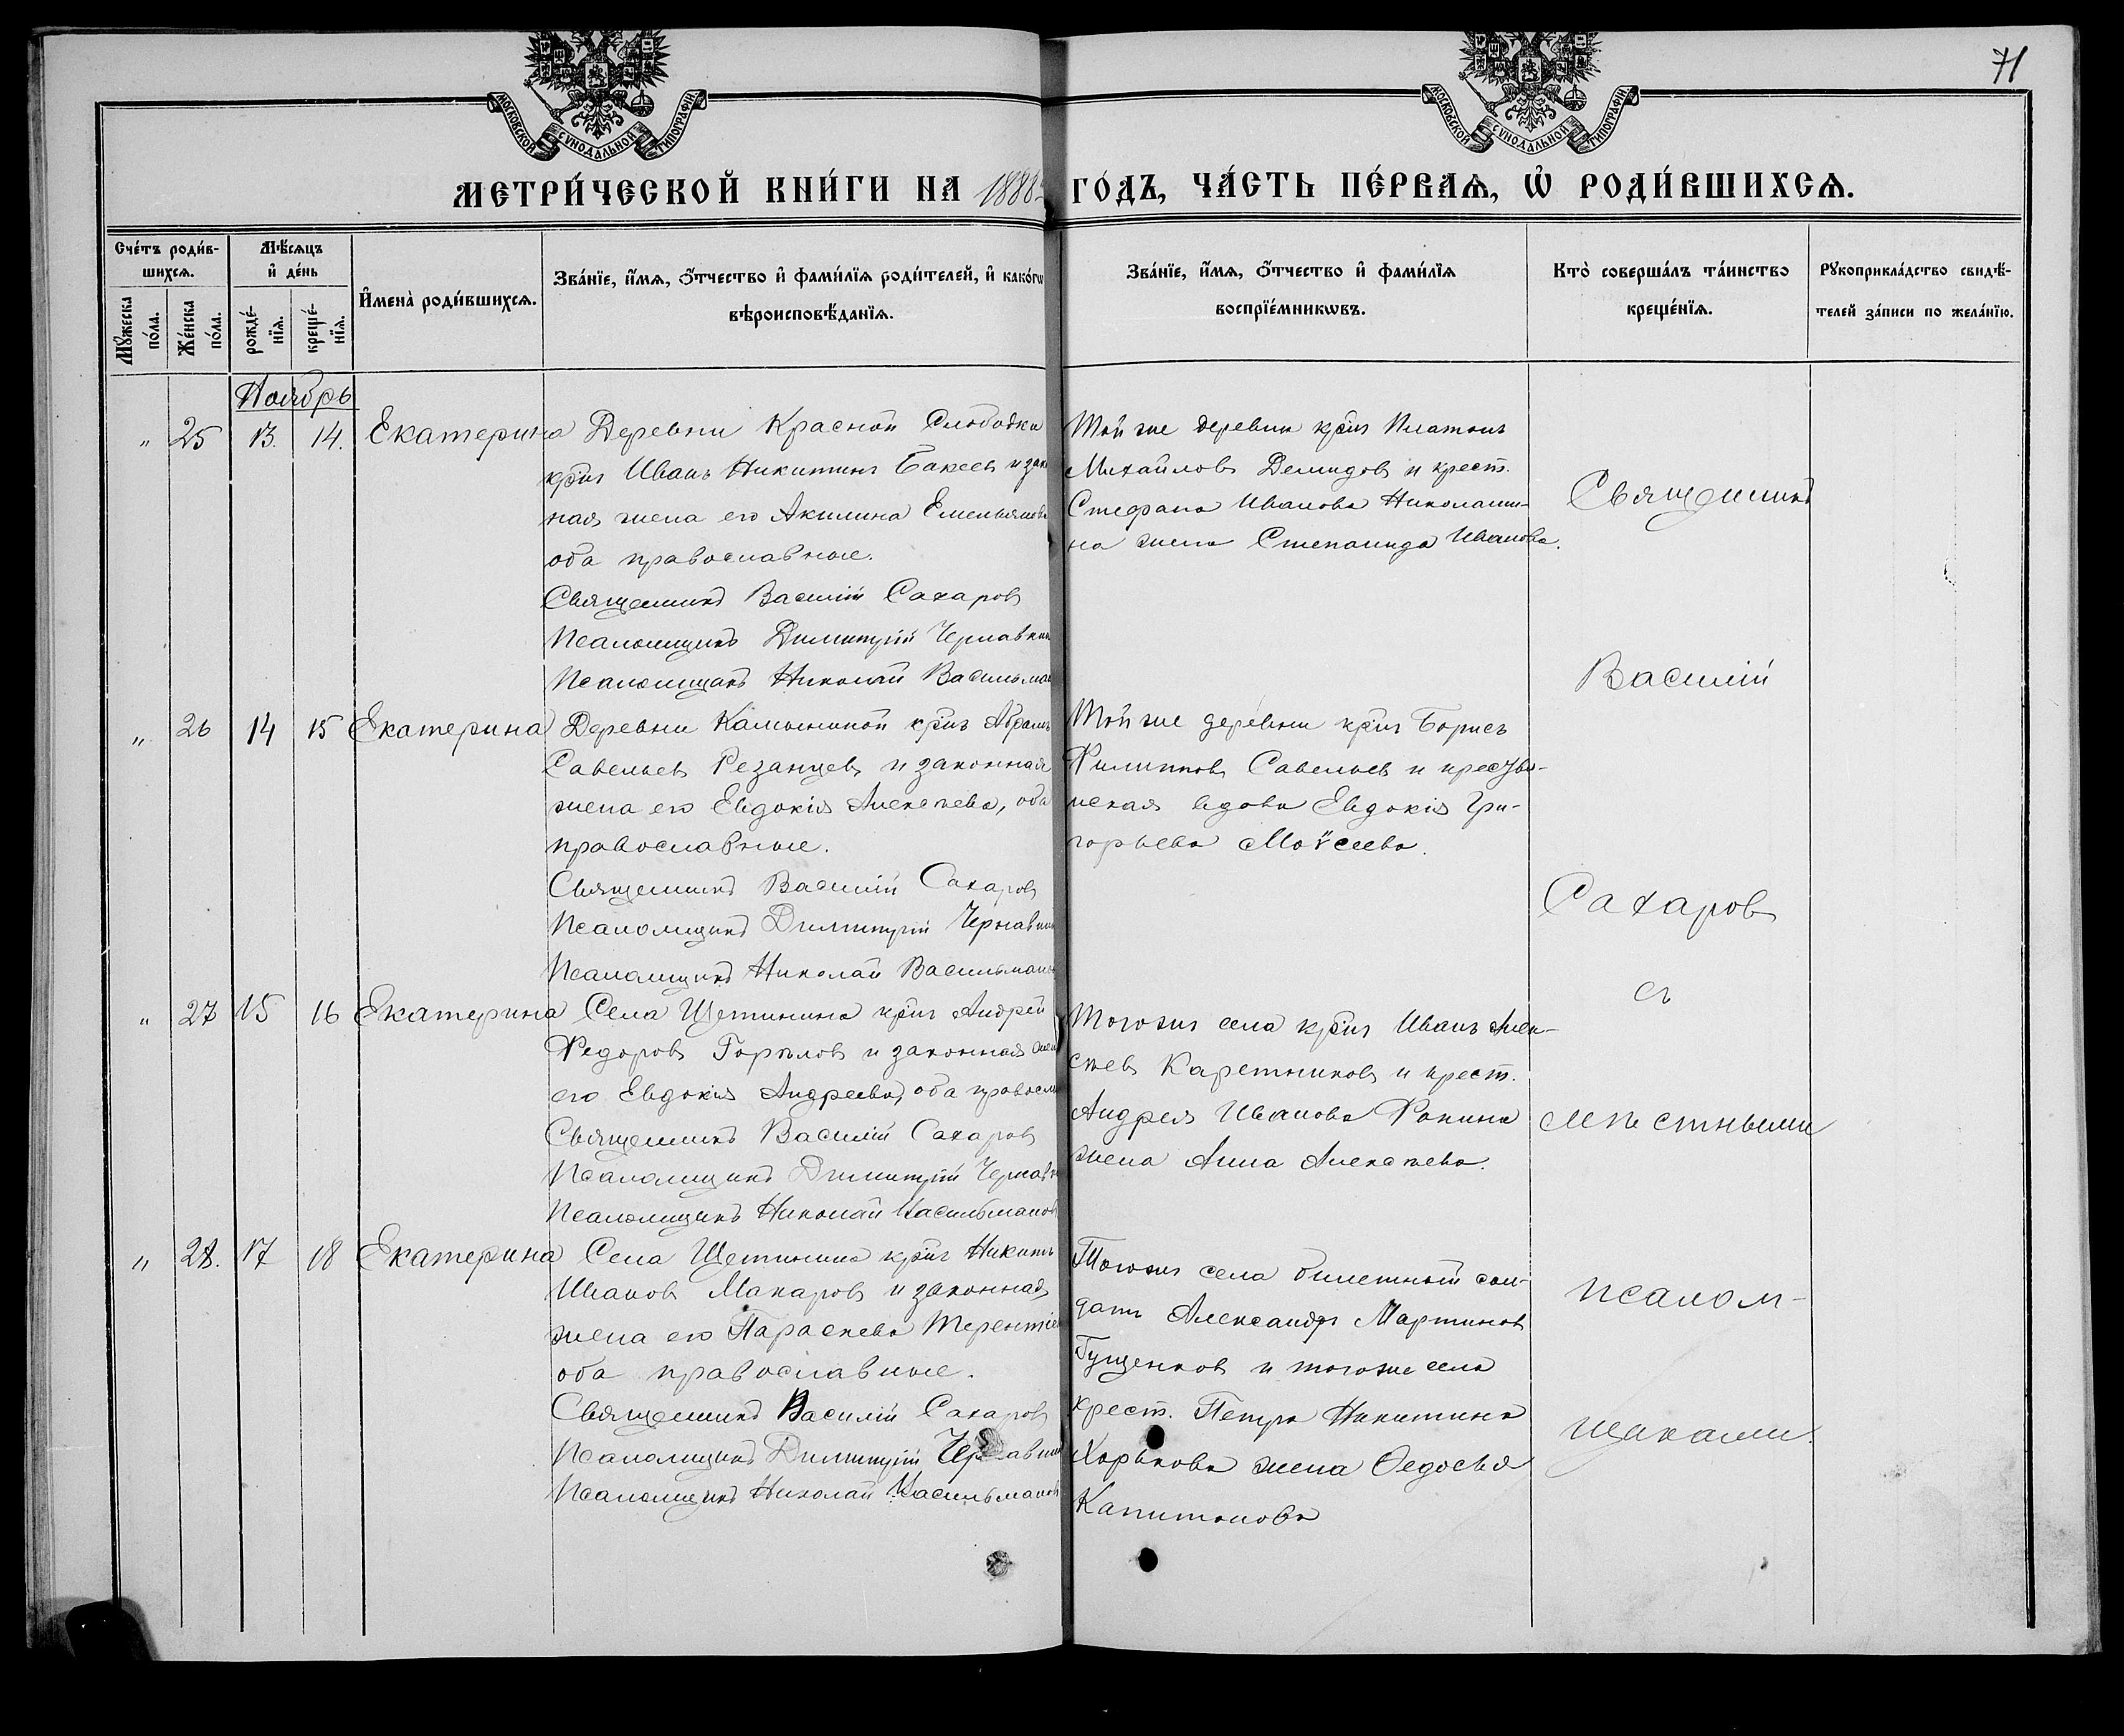 71
МОСКОВСКОЙ СУНОДАЛЬНОЙ ТИПОГРАФІИ
МОСКОВСКОЙ СУНОДАЛЬНОЙ ТИПОГРАФІИ
МЕТРИ́ЧЕСКОЙ КНИ́ГИ НА 1888 ГО́ДЪ, ЧА́СТЬ ПЕ́РВАѦ, Ѡ РОДИ́ВШИХСѦ.
Сче́тъ роди́в-
шихсѧ.
Мꙋжеска по́ла.
Же́нска по́ла.
Мѣ́сѧцъ
и҆ де́нь
рожде́-
нїѧ.
креще́-
нїѧ.
И҆мена̀ роди́вшихсѧ.
Зва́нїе, и҆́мѧ, ѻ҆́тчество и҆ фами́лїѧ роди́телей, и҆ како́гѡ
вѣроисповѣ́данїѧ.
Зва́нїе, и҆́мѧ, ѻ҆́тчество и҆ фами́лїѧ
воспрїе́мникѡвъ.
Кто̀ соверша́лъ та́инство
креще́нїѧ.
Рꙋкоприкла́дство свидѣ́-
телей за́писи по жела́нїю.
Ноябрь
" 25 13. 14. Екатерина
Деревни Красной Слободки
крнъ Иванъ Никитинъ Бакеев и зак
ная жена его Акилина Емельянова
оба православные.
Священникъ Василій Сахаров
Псаломщикъ Димитрій Чернавкин
Псаломщикъ Николай
Той же деревни крнъ Платонъ
Михайловъ Демидов и крест.
Стефана Иванова Николаши-
на жена Степанида Иванова.
" 26 14 15 Екатерина
Деревни крнъ Абрамъ
Савельевъ Резанцев и законная
жена его Евдокія Алексѣева, оба
православные.
Священникъ Василій Сахаров
Псаломщикъ Димитрій Чернавкин
Псаломщикъ Николай
Той же деревни крнъ Борисъ
Филиппов Савельев и крестья-
нская вдова Евдокія Гри-
горьева Моѵсеева.
" 27 15 16 Екатерина
Села Щетинина крнъ Андрей
Федоров Горѣлов и законная жена
его Евдокія Андреева, оба правосла
Священникъ Василій Сахаров
Псаломщикъ Димитрій Чернавк
Псаломщикъ Николай
Тогоже села крнъ Иванъ Алек-
сѣевъ Каретников и крест.
Андрея Иванова Фокина
жена Анна Алексѣева.
" 28. 17 18 Екатерина
Села Щетинина крнъ Никита
Иванов Макаров и законная
жена его Параскева Терентіев
оба православные.
Священникъ Василій Сахаров
Псаломщикъ Димитрій Чернавкин
Псаломщикъ Николай
Тогоже села билетный сол-
датъ Александръ Мартинов
Гущенков и тогоже села
крест. Петра Никитина
Харькова жена Ѳедосья
Капитонова
Священникъ
Василій
Сахаров
съ
мѣстными
псалом-
щиками.